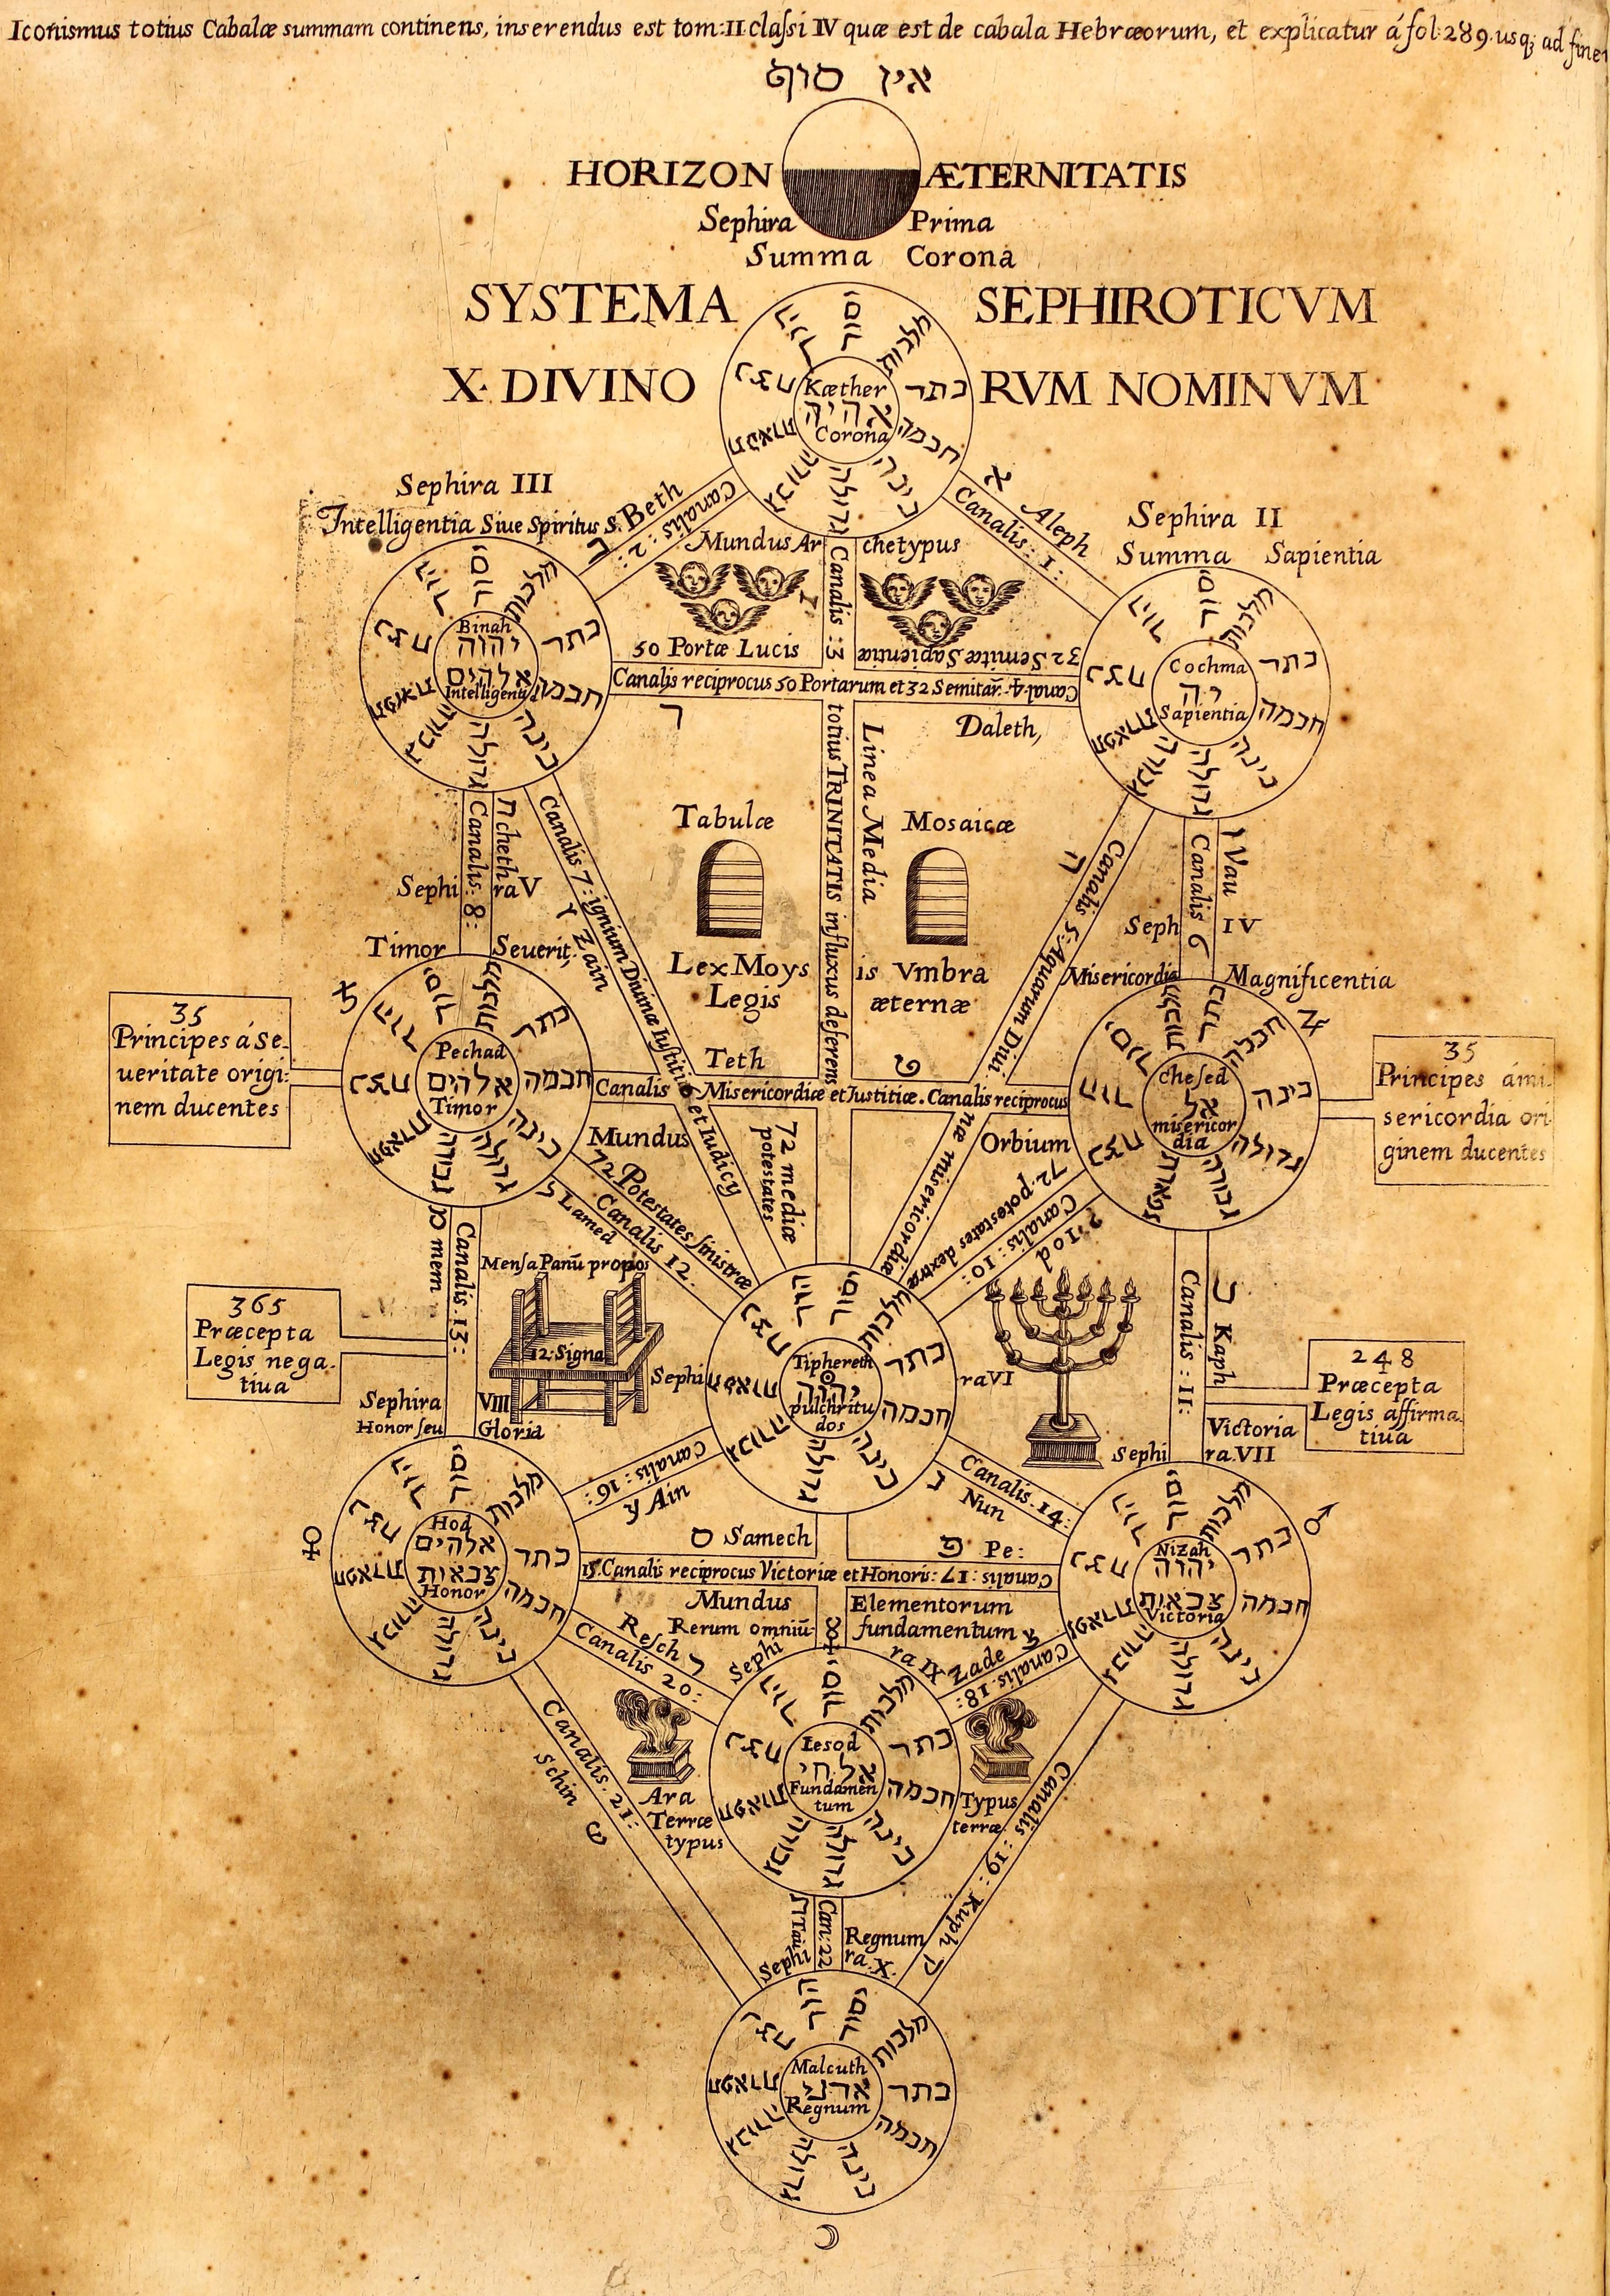 Iconismus totius Cabalæ summam continens, inserendus est tom: II classi IV quæ est de cabala Hebræorum, et explicatur á fol: 289. usq; ad fine
אין סוף
HORIZON ÆTERNITATIS
Sephira Prima
Summa Corona
SYSTEMA SEPHIROTICVM
X. DIVINO RVM NOMINVM
Kæther
אהיה
Corona
יסוד
מלכות
כתר
חכמה
בינה
גדולה
גבורה
תפארת
נצח
הוד
Sephira III
Intelligentia Siue Spiritus S.
ב Beth
Canalis: 2:
א Aleph
Canalis: 1:
Sephira II
Summa Sapientia
Mundus Ar chetypus
Canalis: 3
50 Portæ Lucis
32 Semitæ Sapientiæ
Canalis reciprocus 50 Portarum et 32 Semitar̃. Canal. 4.
ד
Daleth,
Binah
יהוה
אלהים
Intelligentia
Cochma
יה
Sapientia
totius TRINITATIS influxus deferens
Linea Media
Tabulæ Mosaicæ
Lex Moys is Vmbra
Legis æternæ
ח cheth
Canalis: 8:
Sephi ra V
Timor Seuerit,
Canalis 7: ignium Diuinæ Iustitiæ et Iudicÿ
ז Zain
ה
Canalis 5: Aquarum Diui næ misericordiæ
ו Vau
Canalis 6
Seph IV
Misericordia Magnificentia
♄
♃
35
Principes á Se-
ueritate origi:
nem ducentes
Pechad
אלהים
Timor
Teth
ט
Canalis 9 Misericordiæ et Iustitiæ. Canalis reciprocus
chesed
אל
misericor
dia
35
Principes ámi-
sericordia ori
ginem ducentes
Mundus Orbium
72 Potestates sinistræ
Canalis 12.
ל Lamed
72 mediæ
potestates
72. potestates dextræ
Canalis: 10:
י Iod
מ mem
Canalis: 13:
Mensa Panũ propos
12: Signa
כ Kaph
Canalis: 11:
365
Præcepta
Legis nega-
tiua
248
Præcepta
Legis affirma-
tiua
Sephi ra VI
Tiphereth
☉
יהוה
pulchritu
dos
Sephira VIII
Honor seu Gloria
Victoria
Sephi ra. VII
Canalis: 16:
ע Ain
Canalis. 14:
נ Nun
♀
♂
Hod
אלהים
צבאות
Honor
Nizah
יהוה
צבאות
Victoria
ס Samech
פ Pe:
15. Canalis reciprocus Victoriæ et Honoris: Canalis: 17:
Mundus Elementorum
Rerum omniũ fundamentum
☿
Sephi ra IX
Resch ר
Canalis 20:
Zade צ
Canalis. 18:
Iesod
אל חי
Fundamen
tum
Ara
Terræ
typus
Typus
terræ
Canalis. 21:
Schin
ש
Canalis: 19:
Kuph ק
ת Tau
Can: 22
Regnum
Sephi ra. X.
Malcuth
אדני
Regnum
☽